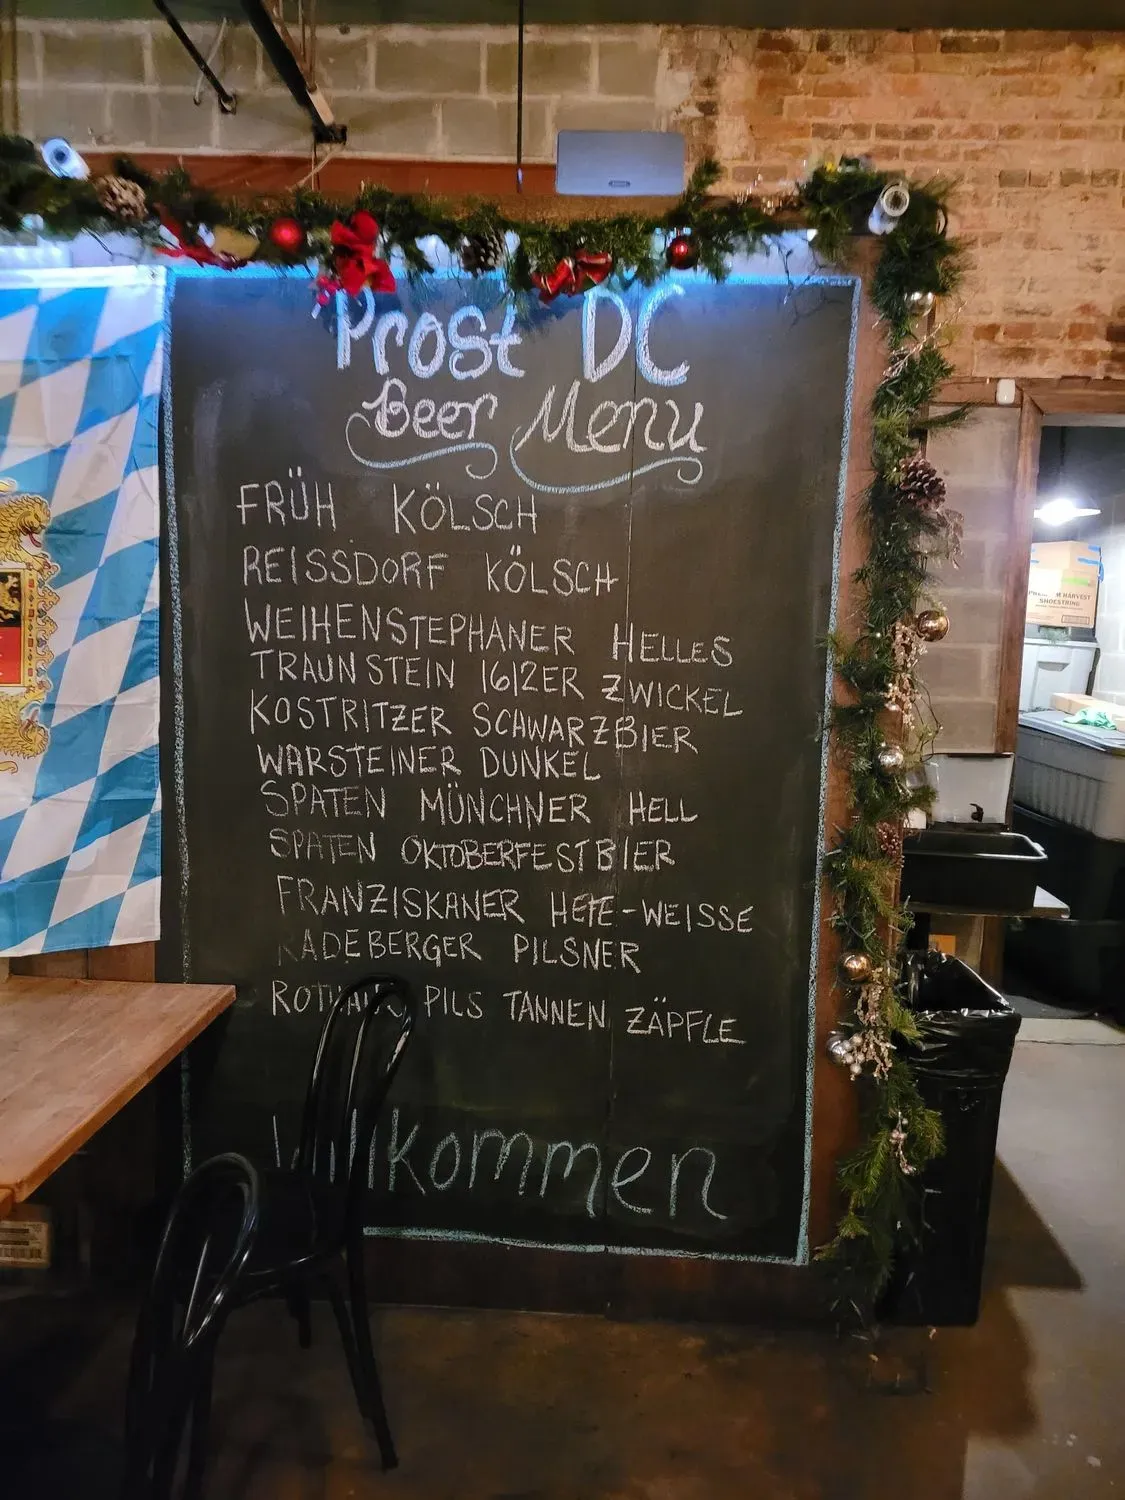 Prost DC
Beer Menu
FRÜH KÖLSCH
REISSDORF KÖLSCH
WEIHENSTEPHANER HELLES
TRAUNSTEIN 1612ER ZWICKEL
KOSTRITZER SCHWARZBIER
WARSTEINER DUNKEL
SPATEN MÜNCHNER HELL
SPATEN OKTOBERFESTBIER
FRANZISKANER HEFE-WEISSE
RADEBERGER PILSNER
ROTHAUS PILS TANNEN ZÄPFLE
Willkommen
HARVEST
SHOESTRING